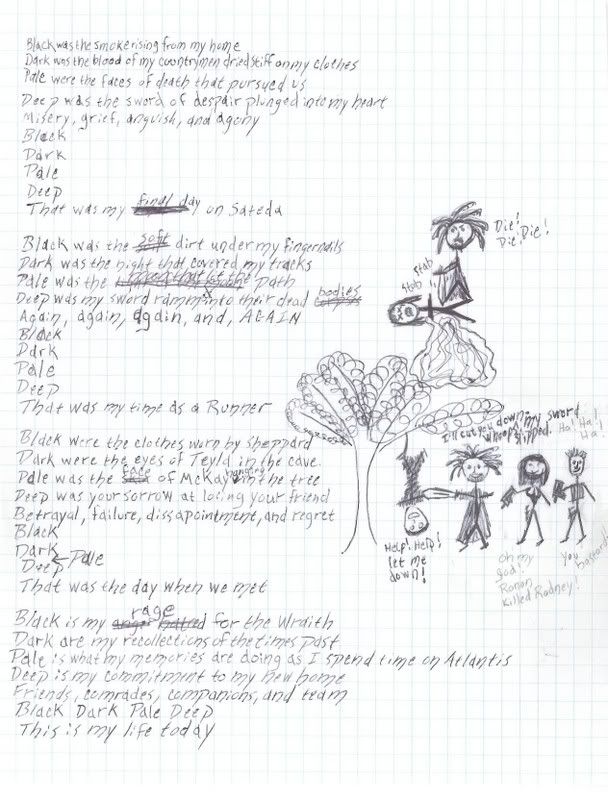 Black was the smoke rising from my home
Dark was the blood of my countrymen dried stiff on my clothes
Pale were the faces of death that pursued us
Deep was the sword of despair plunged into my heart
Misery, grief, anguish, and agony
Black
Dark
Pale
Deep
That was my final day on Sateda
Black was the soft dirt under my fingernails
Dark was the night that covered my tracks
Pale was the path
Deep was my sword ramm into their dead bodies
Again, again, again, and, AGAIN
Black
Dark
Pale
Deep
That was my time as a Runner
Black were the clothes worn by sheppard
Dark were the eyes of Teyla in the cave.
Pale was the face of McKay hanging in the tree
Deep was your sorrow at losing your friend
Betrayal, failure, dissapointment, and regret
Black
Dark
Deep ← Pale
That was the day when we met
Black is my anger hatred rage for the Wraith
Dark are my recollections of the times past
Pale is what my memories are doing as I spend time on Atlantis
Deep is my commitment to my new home
Friends, comrades, companions, and team
Black Dark Pale Deep
This is my life today
Die!
Die! Die!
Stab
Stab
I'll cut you down, my sword
whoops slipped.
Ha! Ha! Ha!
Help! Help!
let me
down!
Oh my
god!
Ronon
killed Rodney!
You
bastard!